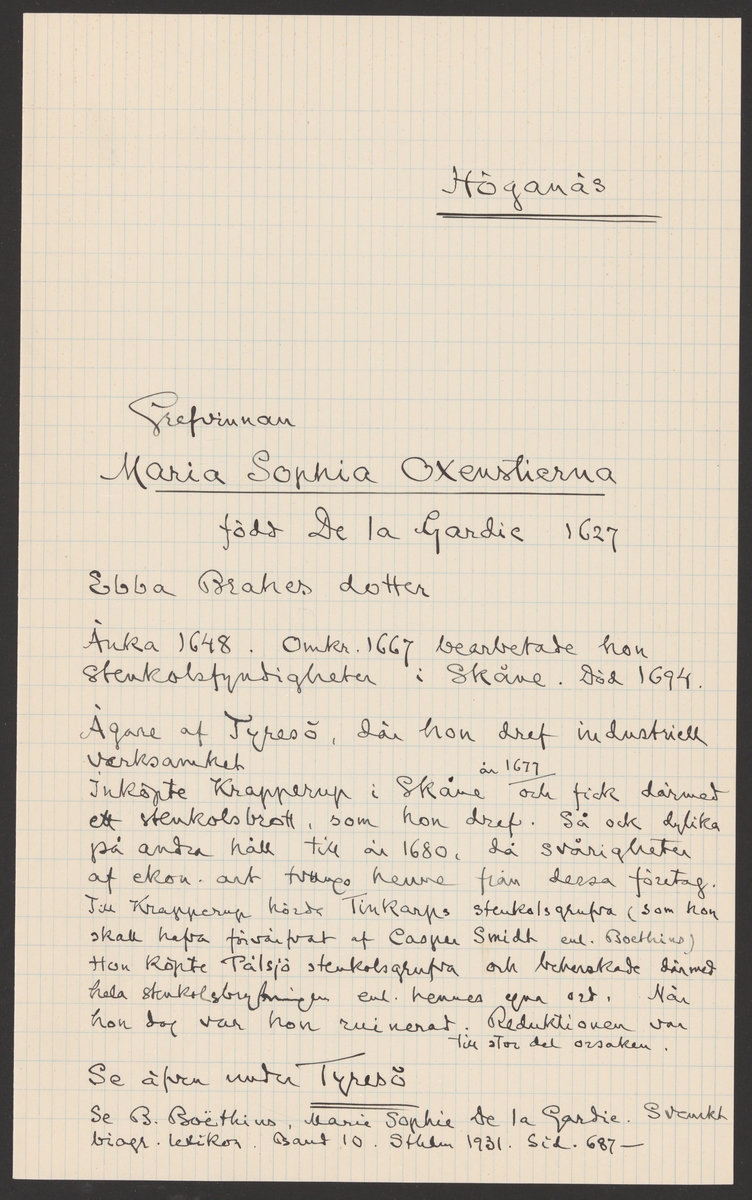 Höganäs
Grefvinnan
Maria Sophia Oxenstierna
född De la Gardie 1627
Ebba Brahes dotter
Änka 1648. Omkr. 1667 bearbetade hon
stenkolsfyndigheter i Skåne. Död 1694.
Ägare af Tyresö, där hon dref industriell
verksamhet
år 1677
Inköpte Krapperup i Skåne och fick därmed
ett stenkolsbrott, som hon dref. Så ock dylika
på andra håll till år 1680, då svårigheter
af ekon. art tvungo henne från dessa företag.
Till Krapperup hörde Tinkarps stenkolsgrufva (som hon
skall hafva förvärfvat af Casper Smidt enl. Boethius)
Hon köpte Pålsjö stenkolsgrufva och beherskade därmed
hela stenkolsbrytningen enl. hennes egna ord. När
hon dog var hon ruinerad. Reduktionen var
till stor del orsaken.
Se äfven under Tyresö
Se B. Boëthius, Marie Sophie De la Gardie. Svenskt
biogr. lexikon. Band 10. Sthlm 1931. Sid. 687—